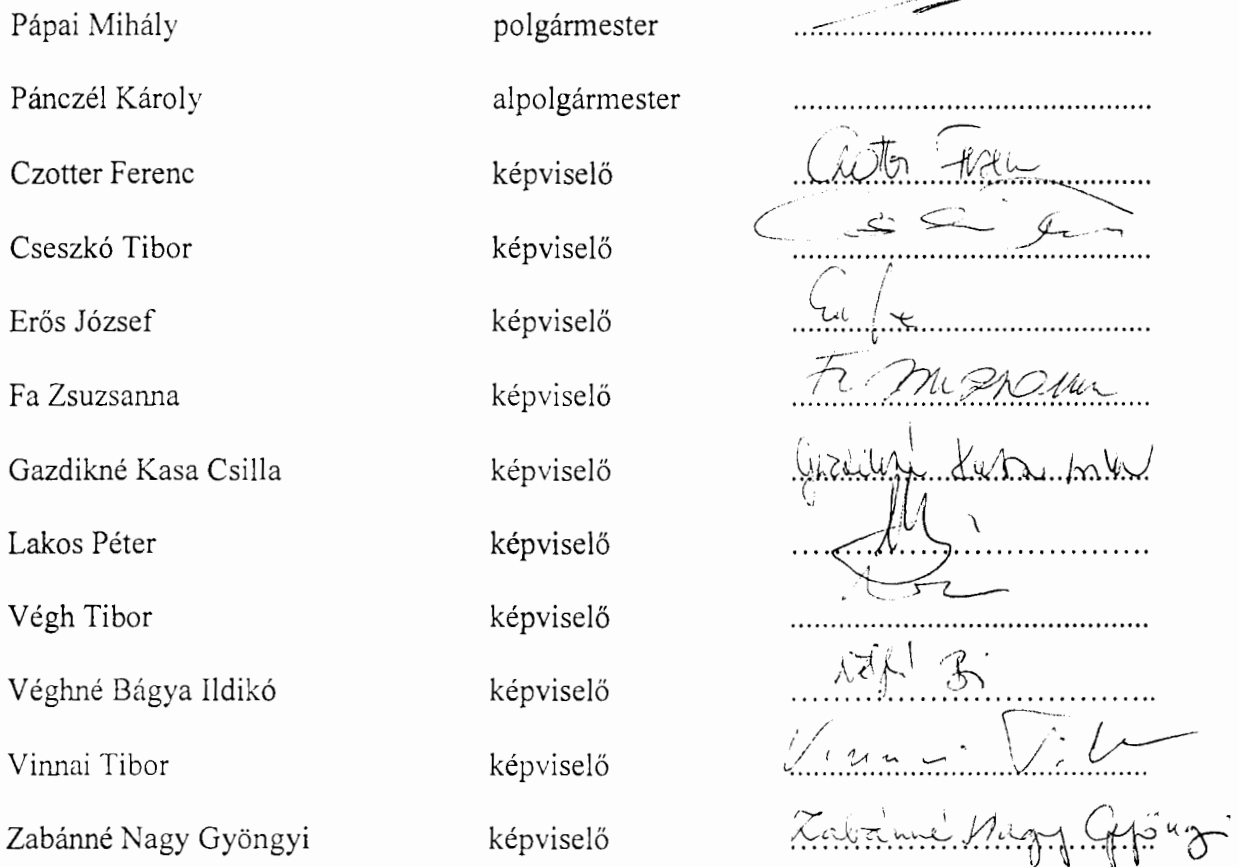 Pápai Mihály polgármester ........................................
Pánczél Károly alpolgármester ........................................
Czotter Ferenc képviselő Czotter Ferenc
Cseszkó Tibor képviselő ........................................
Erős József képviselő ........................................
Fa Zsuzsanna képviselő Fa Zsuzsanna
Gazdikné Kasa Csilla képviselő Gazdikné Kasa Csilla
Lakos Péter képviselő ........................................
Végh Tibor képviselő ........................................
Véghné Bágya Ildikó képviselő ........................................
Vinnai Tibor képviselő Vinnai Tibor
Zabánné Nagy Gyöngyi képviselő Zabánné Nagy Gyöngyi